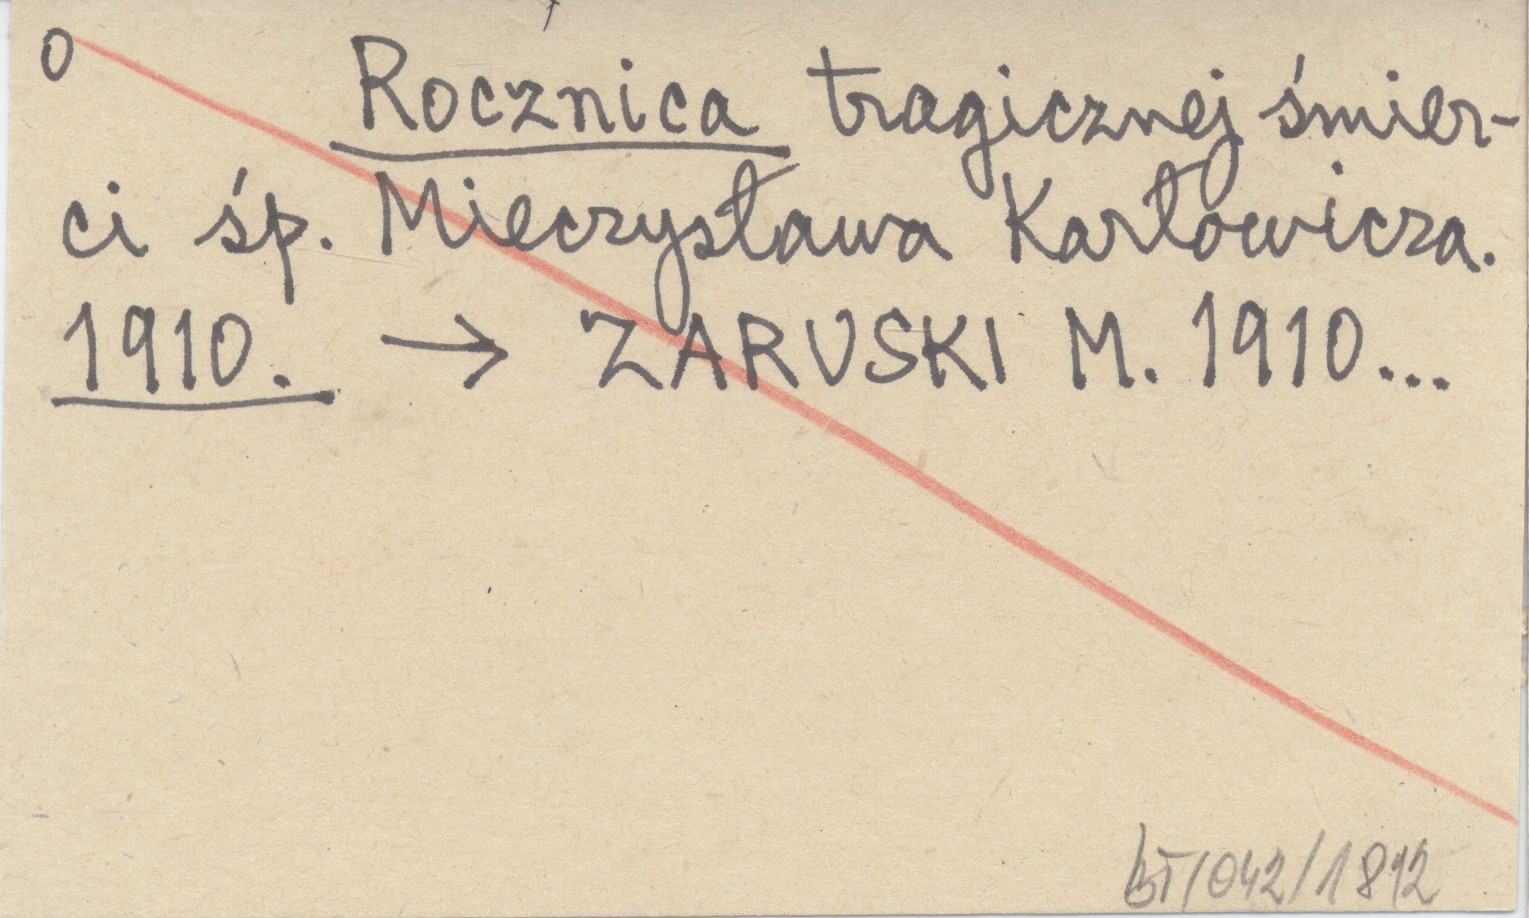 0
Rocznica tragicznej śmier-
ci śp. Mieczysława Karłowicza.
1910. → ZARUSKI M. 1910...
BT/042/1812